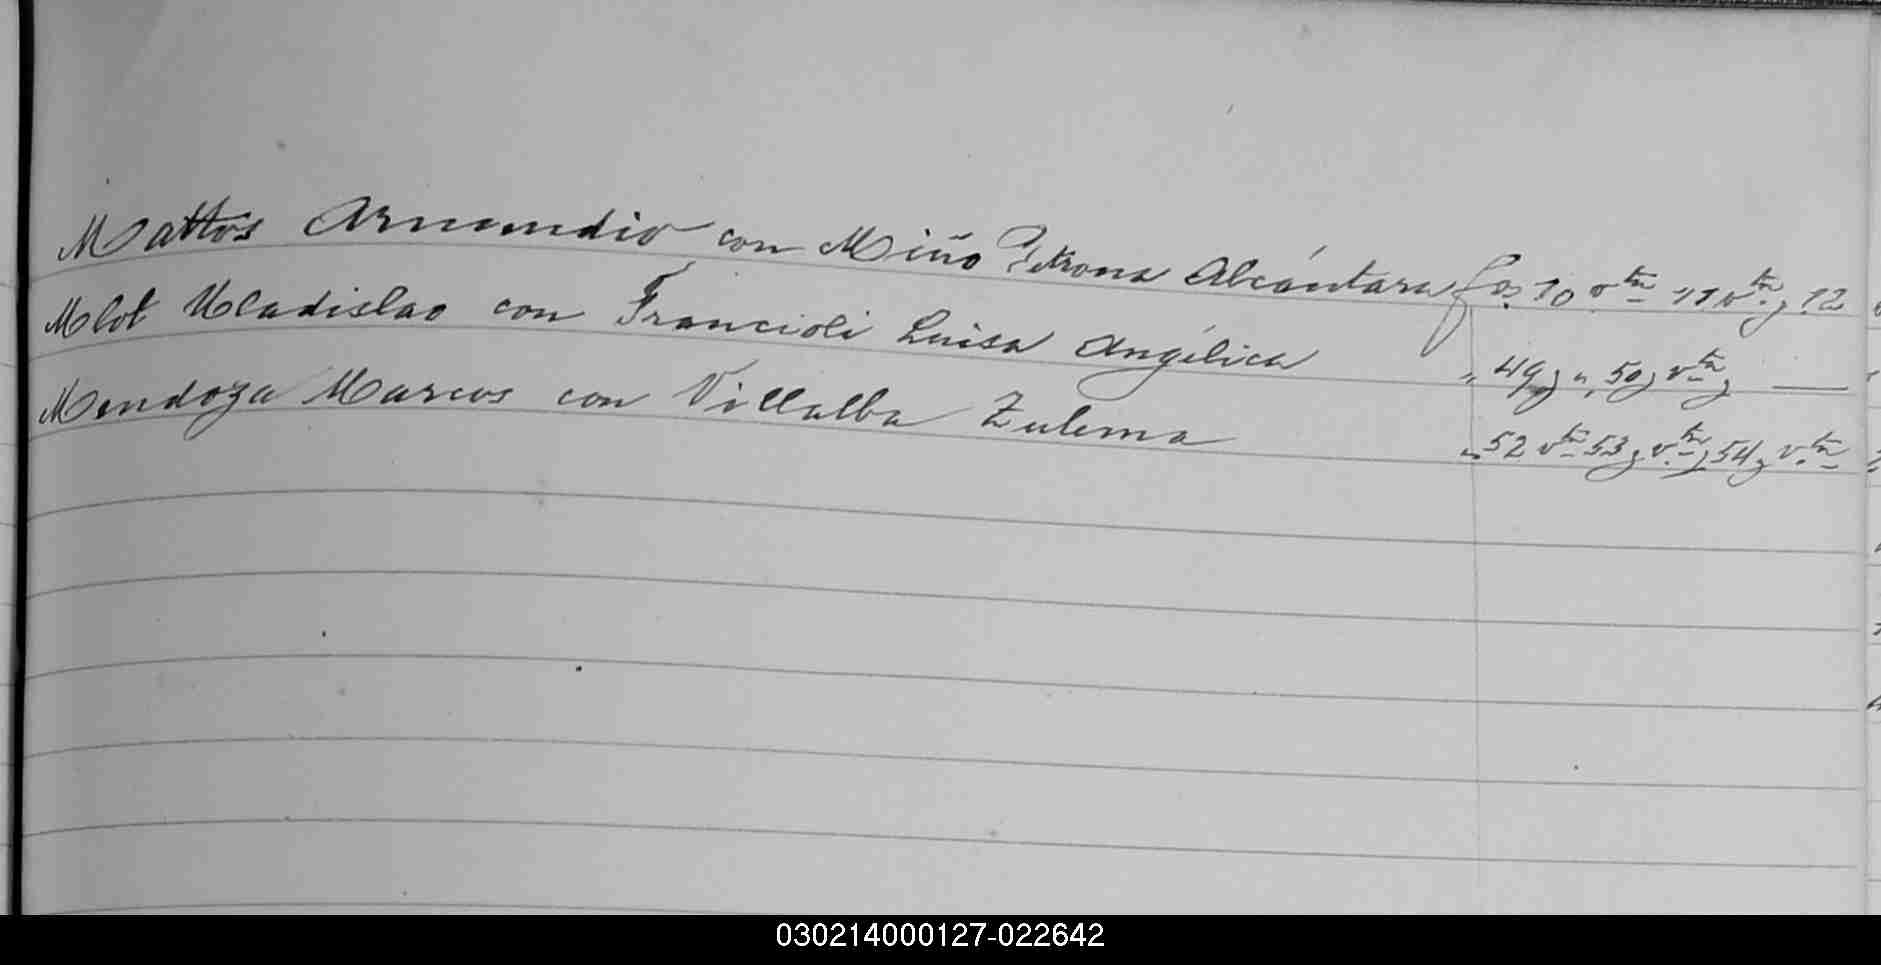 Mattos Armandio con Miño Petrona Alcántara fos. 10 vta 11 vta y 12
Mlot Uladislao con Francioli Luisa Angélica " 49 y " 50 y vta y
Mendoza Marcos con Villalba Zulema " 52 vta 53 y vta y 54 y vta
030214000127-022642